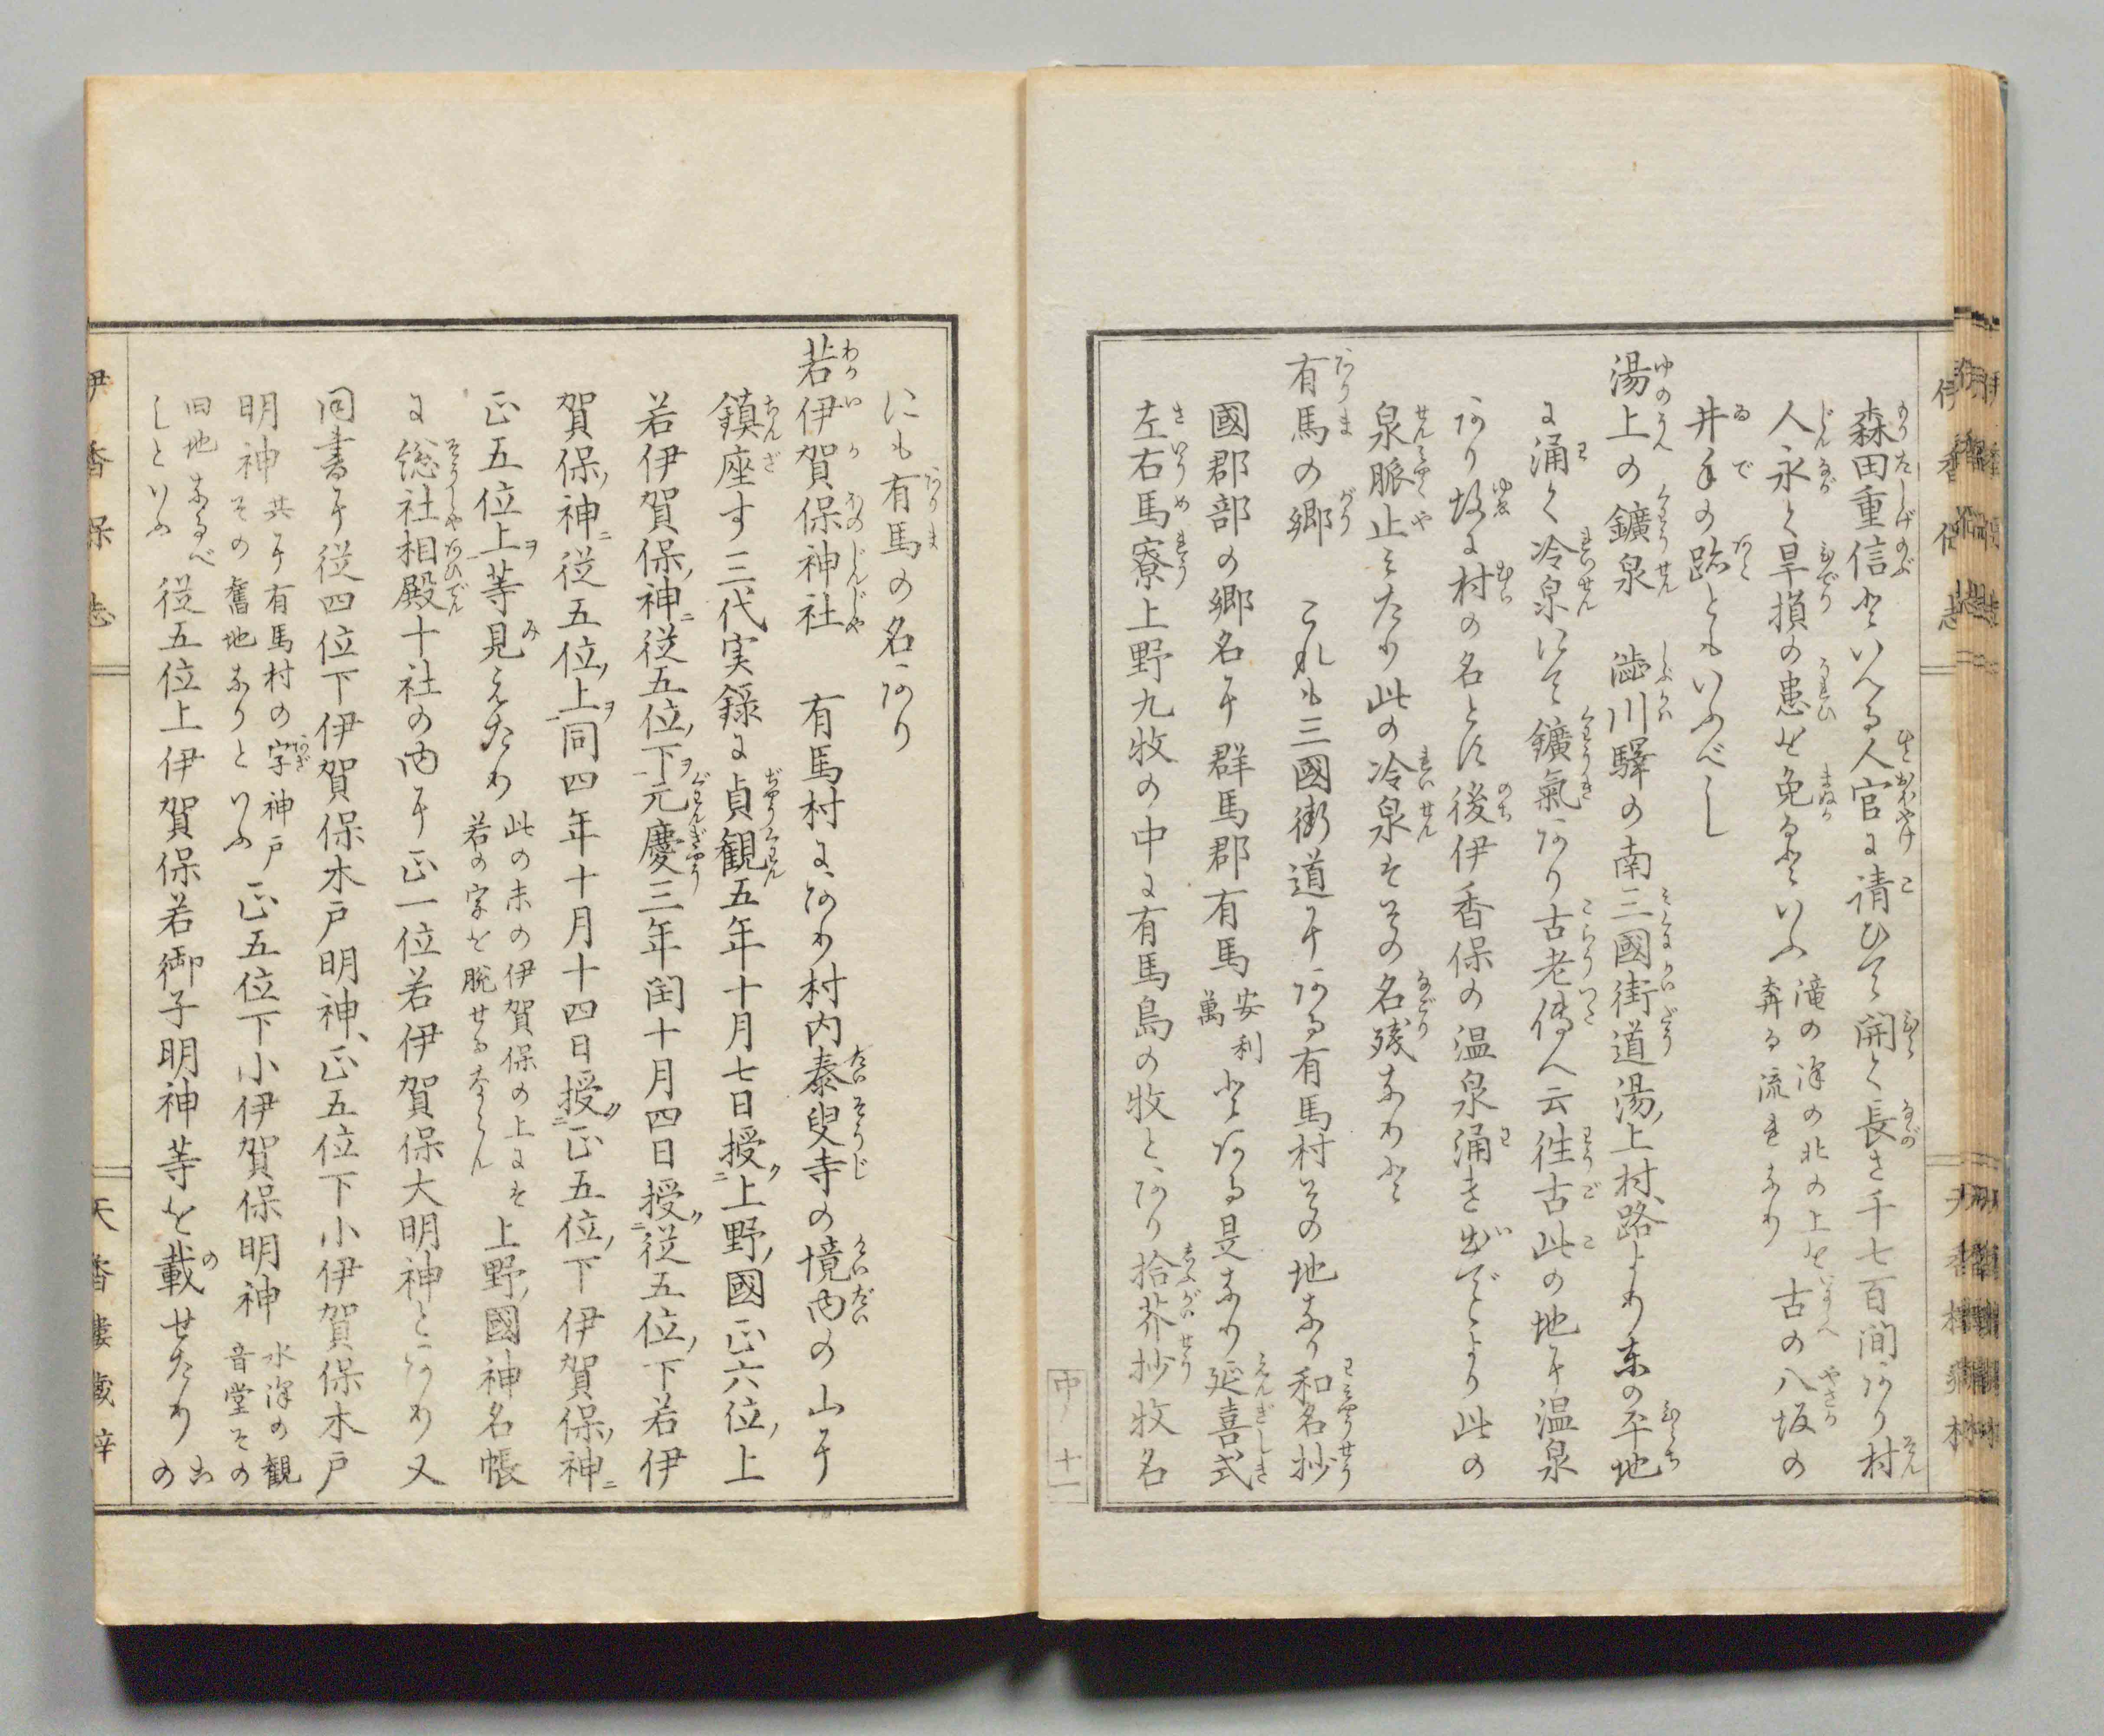 森田重信といへる人官に請ひて開く長さ千七百間あり村
人永く旱損の患を免るといふ滝の澤の北の上を奔る流れなり古の八坂の
井手の跡ともいふべし
湯上の鑛泉 澁川驛の南三國街道湯ノ上村路より東の平地
に涌く冷泉にて鑛氣あり古老傳へ云徃古此の地に温泉
あり故に村の名とす後伊香保の温泉涌き出でしより此の
泉脈止みたり此の冷泉はその名残なりと
有馬の郷 これも三國街道にある有馬村その地なり和名抄
國郡部の郷名に群馬郡有馬安利萬とある是なり延喜式
左右馬寮上野九牧の中に有馬島の牧とあり拾芥抄牧名
中ノ十一
にも有馬の名あり
若伊賀保神社 有馬村にあり村内泰叟寺の境内の山に
鎮座す三代実錄に貞観五年十月七日授ク二上野ノ國正六位ノ上
若伊賀保ノ神ニ従五位ノ下ヲ一元慶三年閏十月四日授ク二従五位ノ下若伊
賀保ノ神ニ従五位ノ上ヲ一同四年十月十四日授ク二正五位ノ下伊賀保ノ神ニ
正五位上ヲ一等見えたり此の末の伊賀保の上には若の字を脱せるならん上野ノ國神名帳
に総社相殿十社の内に正一位若伊賀保大明神とあり又
同書に従四位下伊賀保木戸明神、正五位下小伊賀保木戸
明神共に有馬村の字神戸その舊地なりといふ正五位下小伊賀保明神水澤の観音堂その
旧地なるべしといふ従五位上伊賀保若御子明神等を載せたりこの
伊香保志
天香樓蔵梓